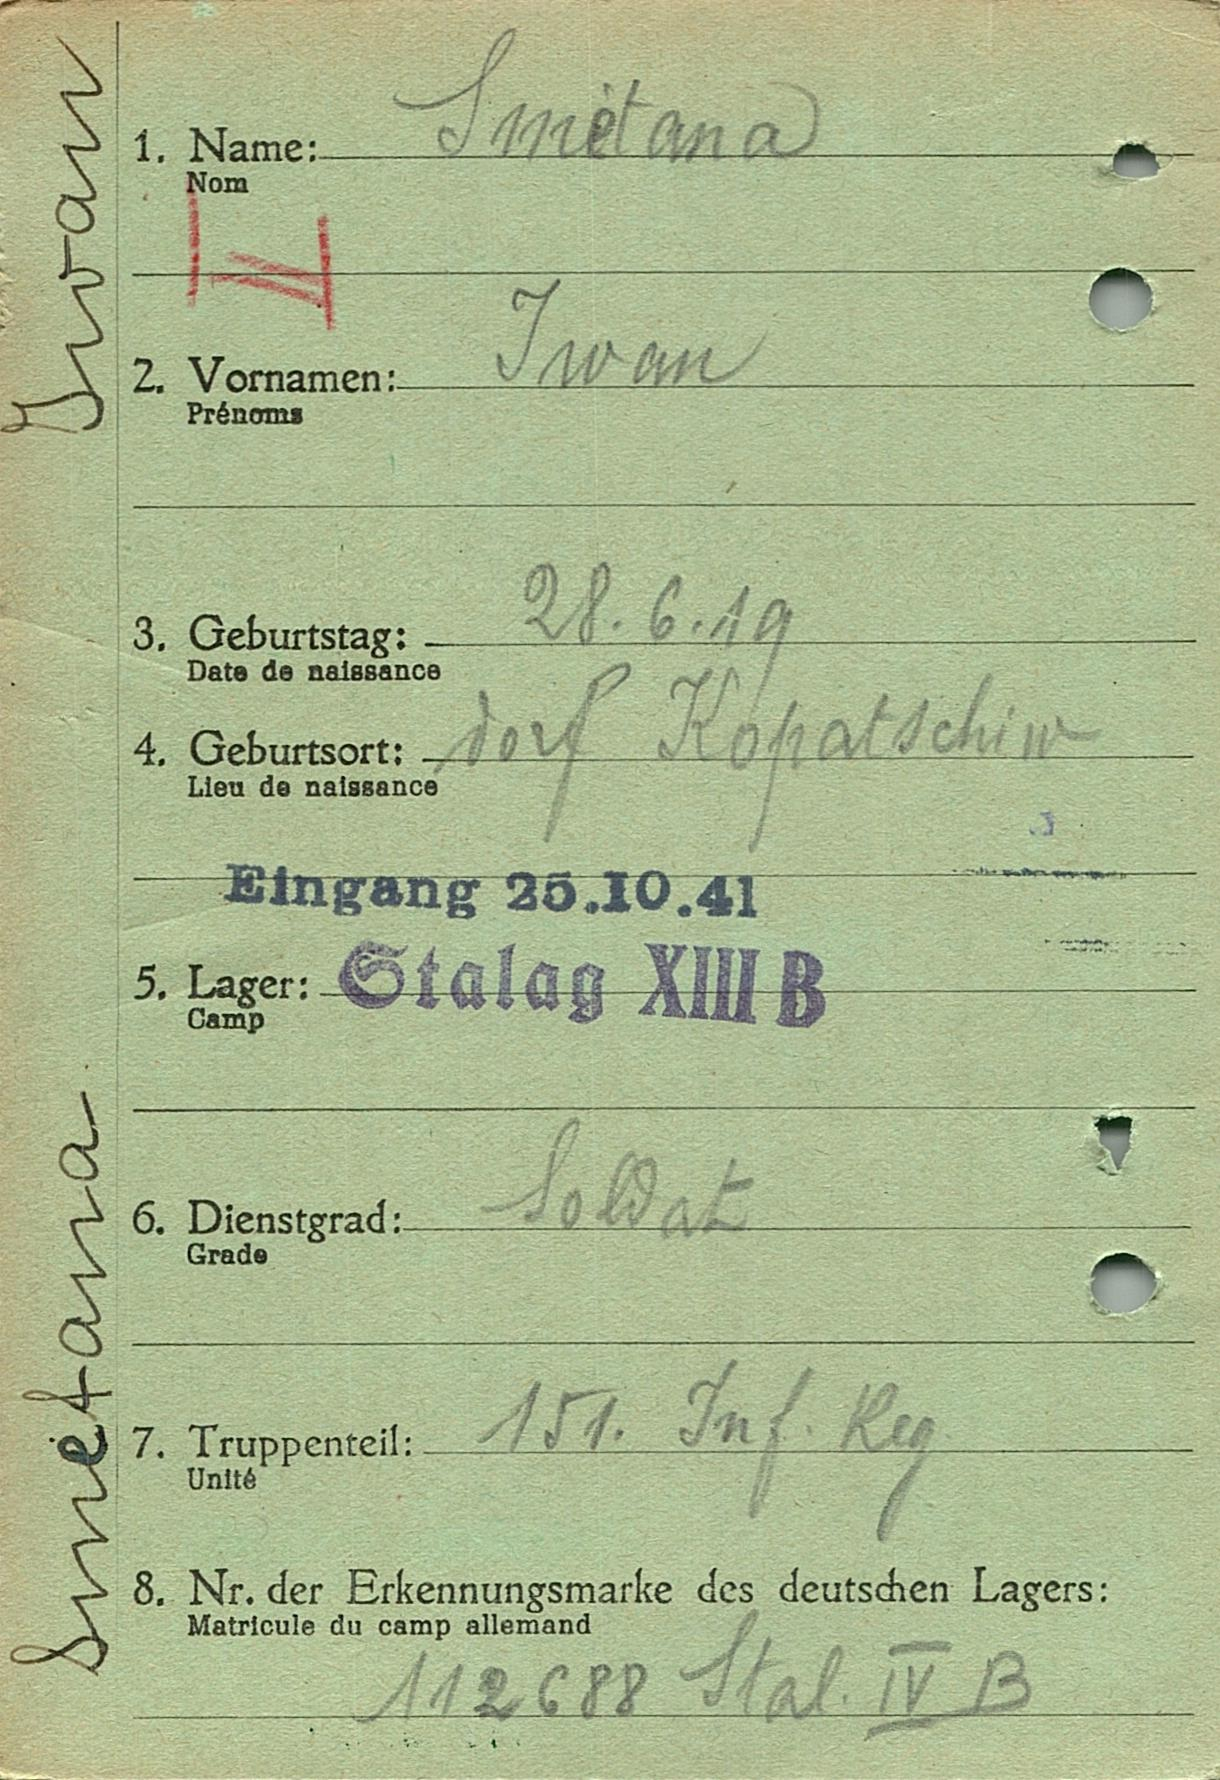 Smetana Iwan
1. Name: Smetana
Nom
2. Vornamen: Iwan
Prénoms
3. Geburtstag: 28.6.19
Date de naissance
4. Geburtsort: dorf Kopatschiw
Lieu de naissance
Eingang 25.10.41
5. Lager: Stalag XIII B
Camp
6. Dienstgrad: Soldat
Grade
7. Truppenteil: 151. Inf. Reg.
Unité
8. Nr. der Erkennungsmarke des deutschen Lagers:
Matricule du camp allemand
112688 Stal. IV B